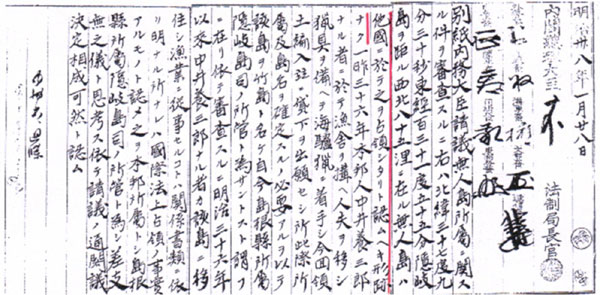 明治卅八年一月廿八日
内閣総理大臣
法制局長官
別紙内務大臣請議無人島所属ニ関ス
ル件ヲ審査スルニ右ハ北緯三十七度九
分三十秒東経百三十一度五十五分隠岐
島ヲ距ル西北八十五浬ニ在ル無人島ハ
他國ニ於テ之ヲ占領シタリト認ムヘキ形跡
ナク一昨三十六年本邦人中井養三郎
ナル者ニ於テ漁舎ヲ構ヘ人夫ヲ移シ
猟具ヲ備ヘテ海驢猟ニ着手シ今回領
土編入並ニ貸下ヲ出願セシ所此際所
属及島名ヲ確定スルノ必要アルヲ以テ
該島ヲ竹島ト名ケ自今島根縣所属
隠岐島司ノ所管ト為サントスト謂フ
ニ在リ依テ審査スルニ明治三十六年
以来中井養三郎ナル者カ該島ニ移
住シ漁業ニ従事セルコトハ関係書類ニ依
リ明ナル所ナレハ國際法上占領ノ事実
アルモノト認メ之ヲ本邦所属トシ島根
縣所属隠岐島司ノ所管ト為シ差支
無之儀ト思考ス依テ請議ノ通閣議
決定相成可然ト認ム